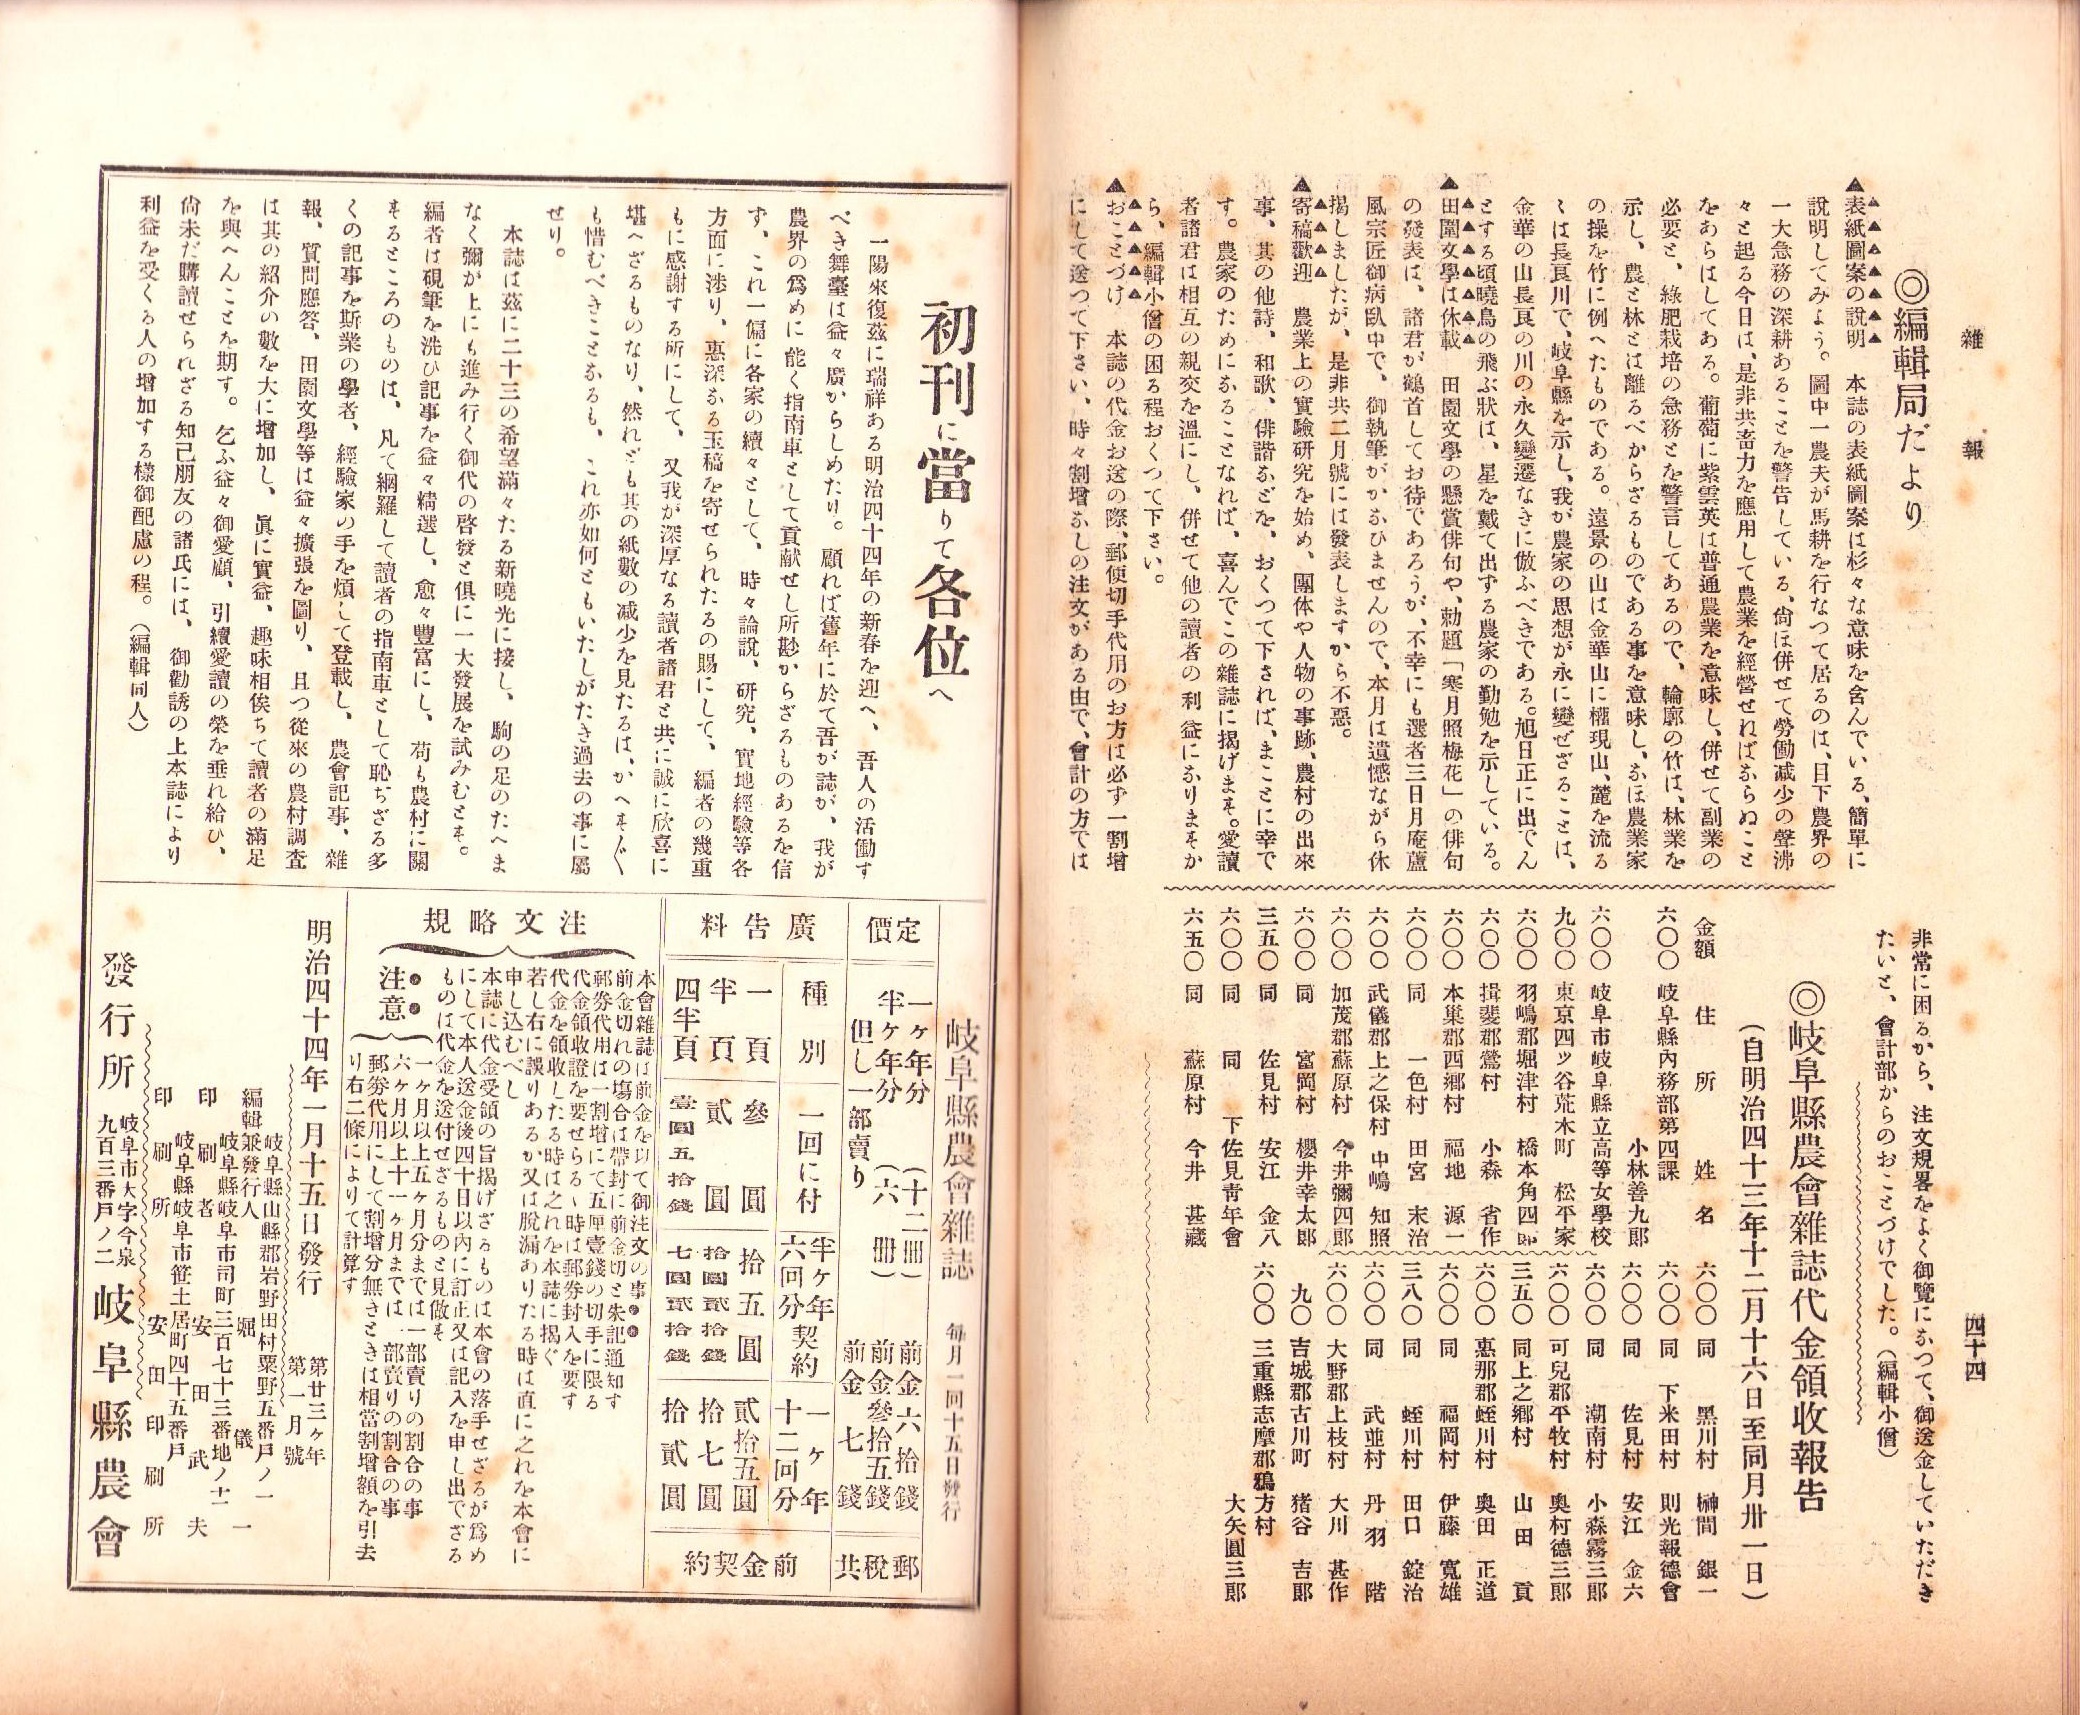 雜報
四十四
◎編輯局だより
▲表紙圖案の說明　本誌の表紙圖案は杉々な意味を含んでいる、簡單に
說明してみよう。圖中一農夫が馬耕を行なつて居るのは、目下農界の
一大急務の深耕あることを警告している、尙ほ併せて勞働減少の聲沸
々と起る今日は、是非共畜力を應用して農業を經營せればならぬこと
をあらはしてある。葡萄に紫雲英は普通農業を意味し、併せて副業の
必要と、綠肥栽培の急務とを警言してあるので、輪廓の竹は、林業を
示し、農と林とは離るべからざるものである事を意味し、なほ農業家
の操を竹に例へたものである。遠景の山は金華山に權現山、麓を流る
ゝは長良川で、岐阜縣を示し、我が農家の思想が永に變ぜざることは、
金華の山長良の川の永久變遷なきに倣ふべきである。旭日正に出でん
とする頃曉鳥の飛ぶ狀は、星を戴て出ずる農家の勤勉を示している。
▲田園文學は休載　田園文學の懸賞俳句や、勅題「寒月照梅花」の俳句
の發表は、諸君が鶴首してお待であろうが、不幸にも選者三日月庵蘆
風宗匠御病臥中で、御執筆がかなひませんので、本月は遺憾ながら休
揭しましたが、是非共二月號には發表しますから不惡。
▲寄稿歡迎　農業上の實驗硏究を始め、團体や人物の事跡、農村の出來
事、其の他詩、和歌、俳諧などを、おくつて下されば、まことに幸で
す。農家のためになることなれば、喜んでこの雜誌に揭げます。愛讀
者諸君は相互の親交を溫にし、併せて他の讀者の利益になりますか
ら、編輯小僧の困る程おくつて下さい。
▲おことづけ　本誌の代金お送の際、郵便切手代用のお方は必ず一割增
にして送つて下さい、時々割增なしの注文がある由で、會計の方では
非常に困るから、注文規畧をよく御覽になつて、御送金していただき
たいと、會計部からのおことづけでした。（編輯小僧）
◎岐阜縣農會雜誌代金領收報告
（自明治四十三年十二月十六日至同月卅一日）
金額　住所　姓名
六〇〇　岐阜縣內務部第四課　小林善九郎
六〇〇　岐阜市岐阜縣立高等女學校
九〇〇　東京四ツ谷荒木町　松平家
六〇〇　羽嶋郡堀津村　橋本角四郎
六〇〇　揖斐郡鶯村　小森省作
六〇〇　本巢郡西鄕村　福地源一
六〇〇　同　一色村　田宮末治
六〇〇　武儀郡上之保村　中嶋知照
六〇〇　加茂郡蘇原村　今井彌四郎
六〇〇　同　富岡村　櫻井幸太郎
三五〇　同　佐見村　安江金八
六〇〇　同　同　下佐見靑年會
六五〇　同　蘇原村　今井甚藏
六〇〇　同　黑川村　榊間銀一
六〇〇　同　下米田村　則光報德會
六〇〇　同　佐見村　安江金六
六〇〇　同　潮南村　小森霧三郎
六〇〇　可兒郡平牧村　奧村德三郎
三五〇　同上之鄕村　山田貢
六〇〇　惠那郡蛭川村　奧田正道
六〇〇　同　福岡村　伊藤寬雄
三八〇　同　蛭川村　田口錠治
六〇〇　同　武並村　丹羽階
六〇〇　大野郡上枝村　大川甚作
九〇　吉城郡古川町　猪谷吉郎
六〇〇　三重縣志摩郡鵜方村
大矢圓三郎
初刊に當りて各位へ
一陽來復茲に瑞祥ある明治四十四年の新春を迎へ、吾人の活働す
べき舞臺は益々廣からしめたり。顧れば舊年に於て吾が誌が、我が
農界の爲めに能く指南車として貢献せし所尠からざるものあるを信
ず、これ一偏に各家の續々として、時々論說、硏究、實地經驗等各
方面に涉り、惠深かる玉稿を寄せられたるの賜にして、編者の幾重
もに感謝する所にして、又我が深厚なる讀者諸君と共に誠に欣喜に
堪へざるものなり、然れども其の紙數の減少を見たるは、かへすぐ
も惜むべきことなるも、これ亦如何ともいたしがたき過去の事に屬
せり。
本誌は茲に二十三の希望滿々たる新曉光に接し、駒の足のたへま
なく彌が上にも進み行く御代の啓發と俱に一大發展を試みむとす。
編者は硯筆を洗ひ記事を益々精選し、愈々豐富にし、苟も農村に關
するところのものは、凡て網羅して讀者の指南車として恥ぢざる多
くの記事を斯業の學者、經驗家の手を煩して登載し、農會記事、雜
報、質問應答、田園文學等は益々擴張を圖り、且つ從來の農村調査
は其の紹介の數を大に增加し、眞に實益、趣味相俟ちて讀者の滿足
を與へんことを期す。乞ふ益々御愛顧、引續愛讀の榮を垂れ給ひ、
尙未だ購讀せられざる知己朋友の諸氏には、御勸誘の上本誌により
利益を受くる人の增加する樣御配慮の程。（編輯同人）
岐阜縣農會雜誌　每月一回十五日發行
定價
一ヶ年分（十二冊）　前金六拾錢
半ヶ年分（六冊）　前金參拾五錢
但し一部賣り　前金七錢
郵稅共
廣告料
種別　一回に付　半ヶ年契約六回分　一ヶ年十二回分
一頁　參圓　拾五圓　貳拾五圓
半頁　貳圓　拾圓貳拾錢　拾七圓
四半頁　壹圓五拾錢　七圓貳拾錢　拾貳圓
前金契約
注文略規
本會雜誌は前金を以て御注文の事
前金切れの場合は帶封に前金切と朱記通知す
郵券代用は一割增にて五厘壹錢の切手に限る
代金領收證を要せらるゝ時は郵券封入を要す
代金を領收したる時は之れを本誌に揭ぐ
若し右に誤りあるか又は脫漏ありたる時は直に之れを本會に
申し込むべし
本誌に代金受領の旨揭げざるものは本會の落手せざるが爲め
にして本人送金後四十日以內に訂正又は記入を申し出でざる
ものは代金を送付せざるものと見做す
注意
一ヶ月以上五ヶ月分までは一部賣りの割合の事
六ヶ月以上十一ヶ月までは一部賣りの割合の事
郵券代用にして割增分無きときは相當割增額を引去
り右二條によりて計算す
明治四十四年一月十五日發行
第廿三ヶ年
第一月號
岐阜縣山縣郡岩野田村粟野五番戶ノ一
編輯兼發行人　堀儀一
岐阜縣岐阜市司町三百七十三番地ノ十一
印刷者　安田武夫
岐阜縣岐阜市笹土居町四十五番戶
印刷所　安田印刷所
岐阜市大字今泉
九百三番戶ノ二
發行所　岐阜縣農會